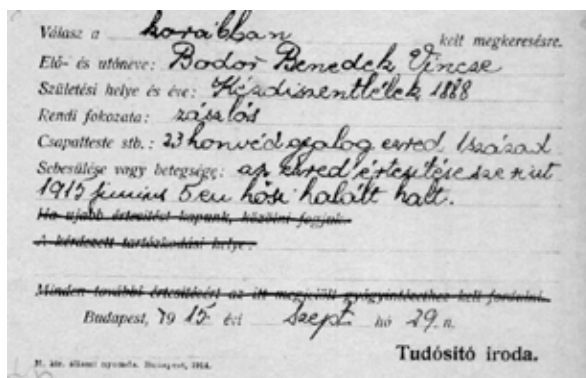 Válasz a korábban kelt megkeresésre.
Elő- és utóneve: Bodor Benedek Vincse
Születési helye és éve: Kézdiszentlélek 1888
Rendi fokozata: zászlós
Csapatteste stb.: 23 honvéd gyalog ezred 1 század
Sebesülése vagy betegsége: az ezred értesítése szerint
1915 junius 5 en hősi halált halt.
Ha ujabb értesitést kapunk, közölni fogjuk.
A kérdezett tartózkodási helye:
Minden további értesitésért az itt megjelölt gyógyintézethez kell fordulni.
Budapest, 1915 évi Szept hó 29.n.
Tudósító iroda.
M. kir. állami nyomda. Budapest, 1914.